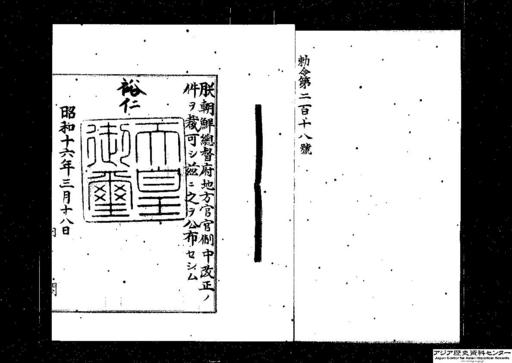 勅令第二百十八號
朕朝鮮總督府地方官官制中改正ノ
件ヲ裁可シ茲ニ之ヲ公布セシム
裕仁
天皇
御璽
昭和十六年三月十八日
アジア歴史資料センター
Japan Center for Asian Historical Records